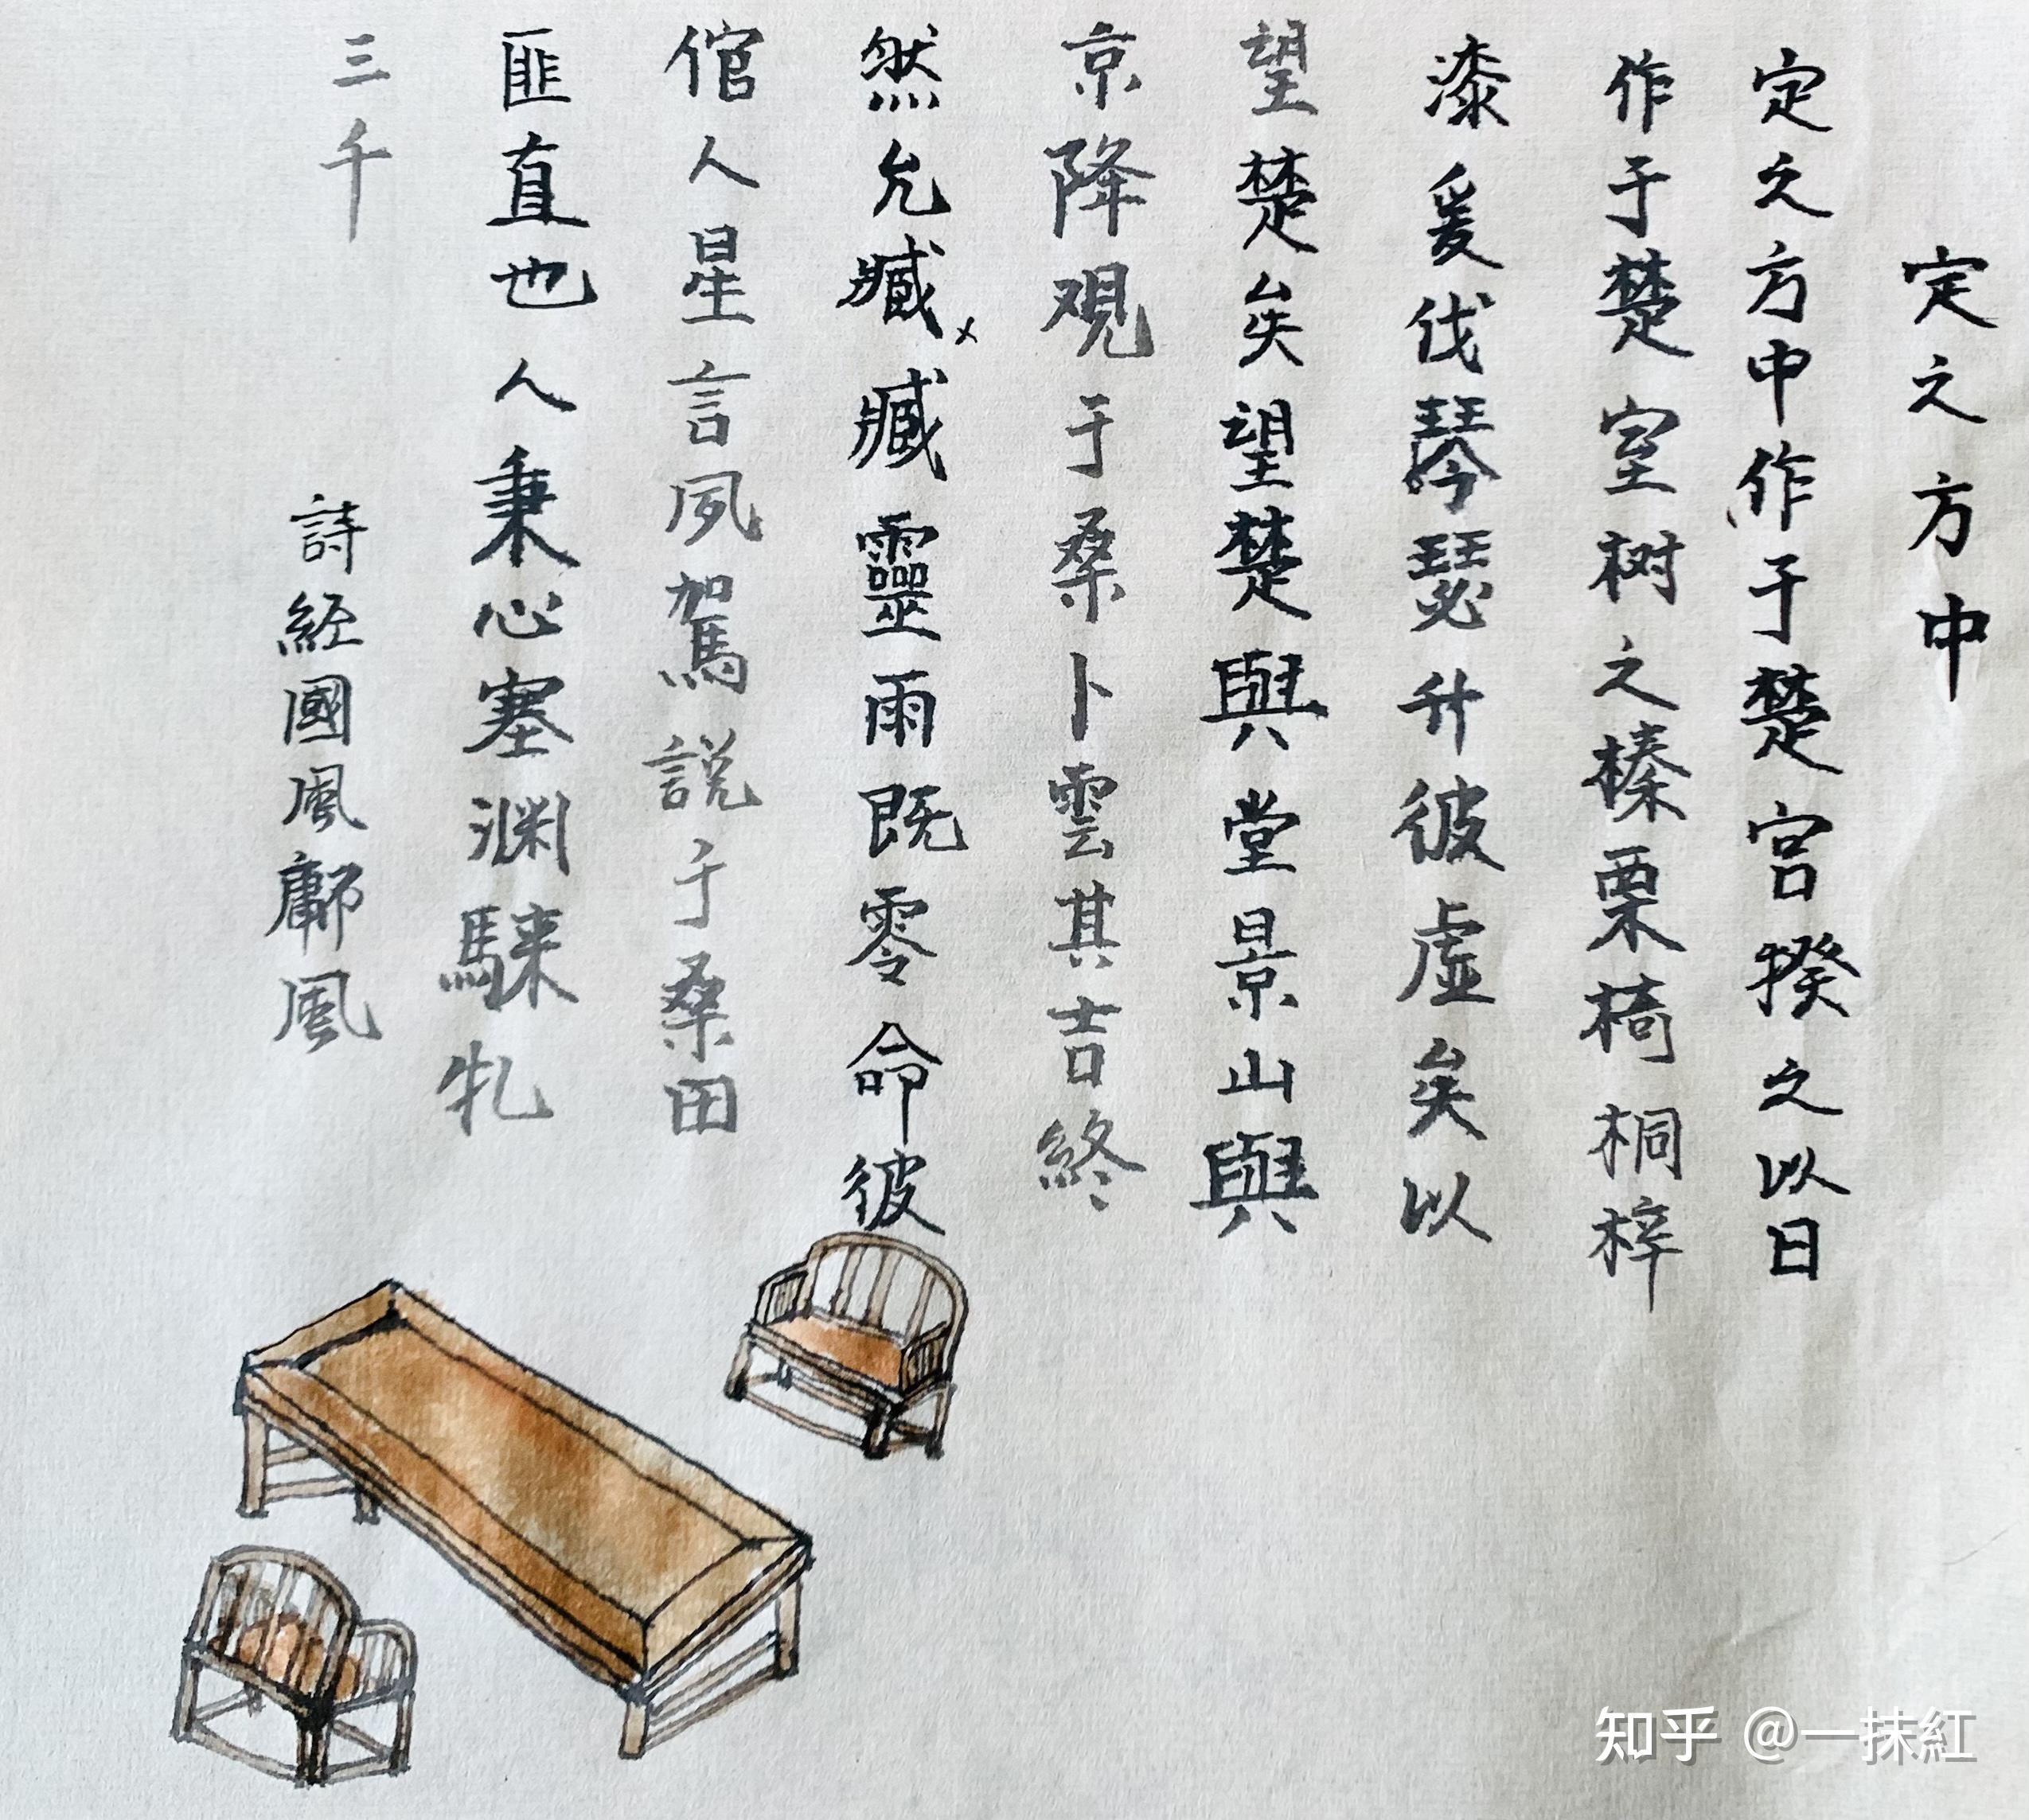 定之方中
定之方中作于楚宫揆之以日
作于楚室树之榛栗椅桐梓
漆爰伐琴瑟升彼虚矣以
望楚矣望楚與堂景山與
京降观于桑卜雲其吉終
然允臧臧靈雨既零命彼
倌人星言夙駕説于桑田
匪直也人秉心塞渊騋牝
三千
詩経國風鄘風
知乎 @一抹紅